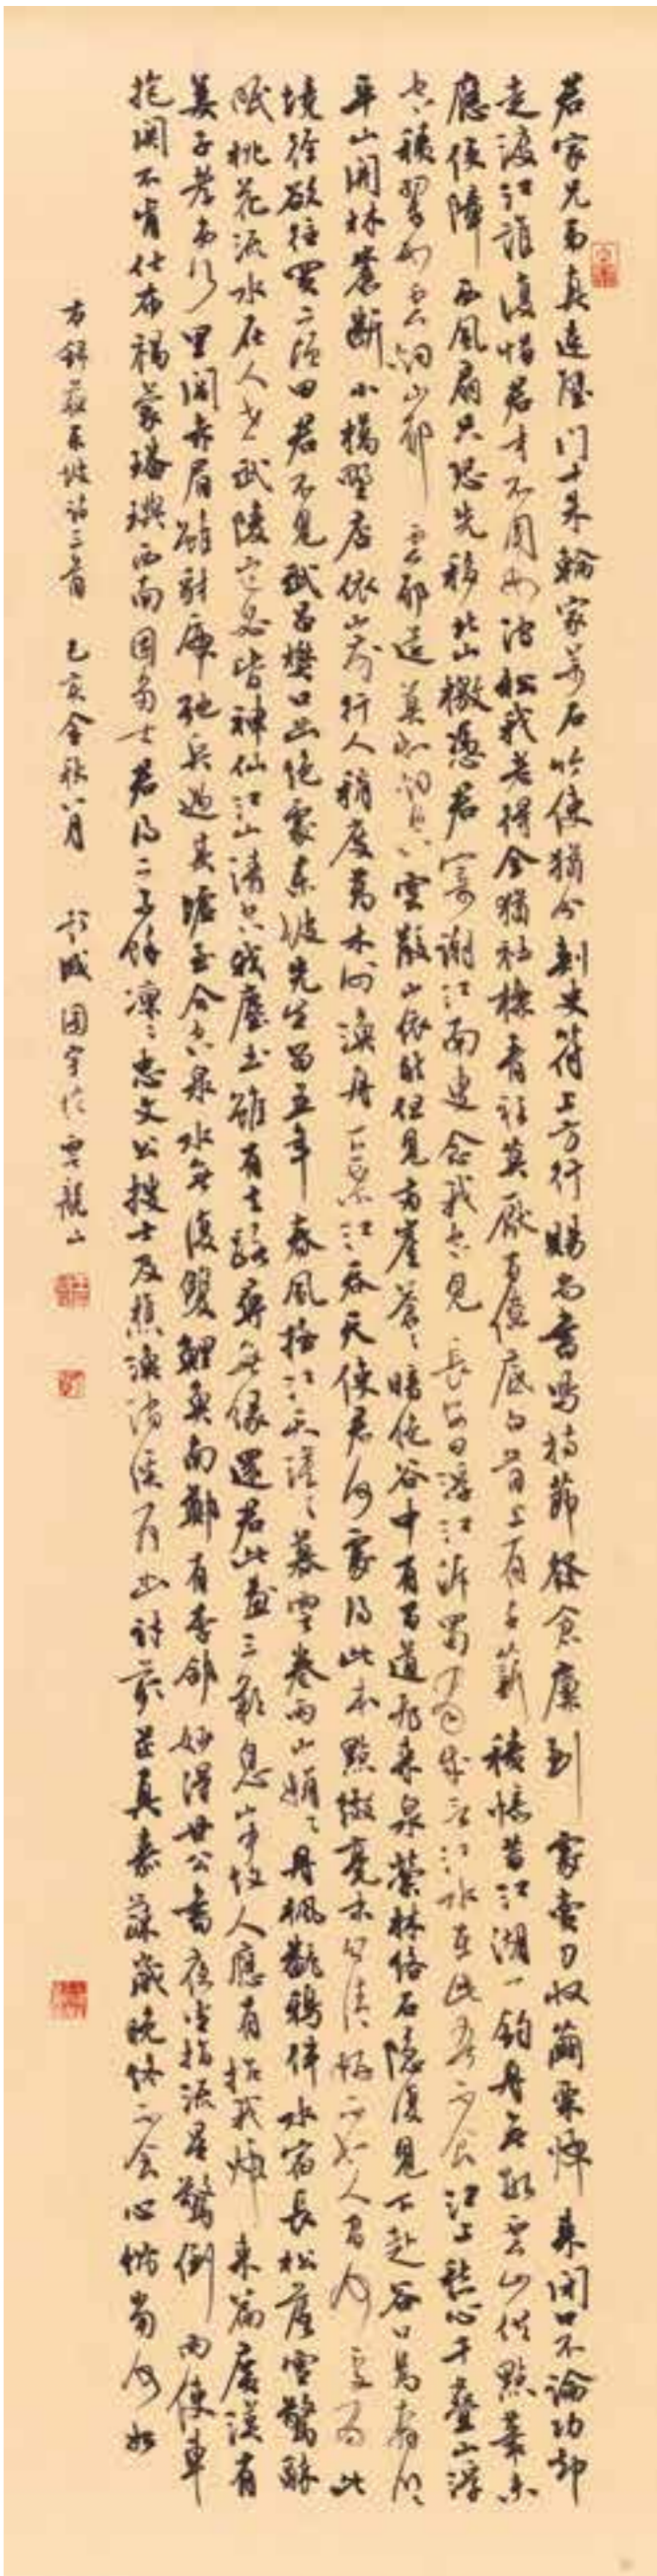 君家兄弟真連璧門十朱輪家萬石竹使猶分刺史符上方行賜尚書舄持節發倉廩到處賣刀收繭栗歸來閉口不論功却
走渡江誰復惜君才不用如澗松我老得全猶社櫟青衫莫厭百僚底白首上有千薪積憶昔江湖一釣舟無數雲山供點筆未
應便障西風扇只恐先移北山檄憑君寄謝江南叟念我空見長安日浮江泝蜀有成言江水在此吾不食江上愁心千疊山浮
空積翠如雲烟山耶雲耶遠莫知烟空雲散山依然但見兩崖蒼蒼暗絕谷中有百道飛來泉縈林絡石隱復見下赴谷口為奔川川
平山開林麓斷小橋野店依山前行人稍度喬木外漁舟一葉江吞天使君何處得此本點綴毫末分清妍不知人間何處有此
境徑欲往買二頃田君不見武昌樊口幽絕處東坡先生留五年春風搖江天漠漠暮雲卷雨山娟娟丹楓翻鴉伴水宿長松落雪驚醉
眠桃花流水在人世武陵豈必皆神仙江山清空我塵土雖有去路尋無緣還君此畫三歎息山中故人應有招我歸來篇廣漢有
姜子孝弟行里閭赤眉雖豺虎弛兵過其墟至今空泉水無復雙鯉魚南鄭有李郃妙得甘公書夜坐指流星驚倒兩使車
抱關不肯仕布褐蒙璠璵西南固多士君得二子餘凜凜忠文公搜士及樵漁諸孫有歲晚終不食心惻當何如
右錄蘇東坡詩三首 己亥金秋八月 彭城國宇於雲龍山